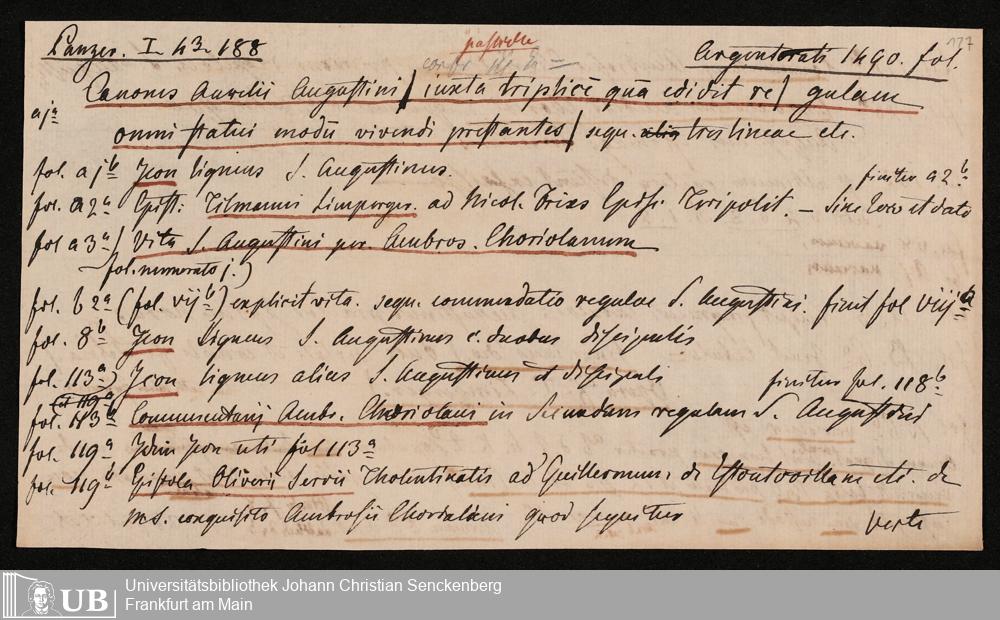 Panzer. I. 43. 188
Argentorati 1490. fol.
127
Canonis Aurelii Augustini / iuxta triplicē quā edidit re / gulam
aj a
omni statui modū vivendi prestantes / sequ. tres lineae etc.
fol. a j b Icon ligneus S. Augustinus. finitur a 2 b
fol. a 2 a Epist. Tilmanni Limperger. ad Nicol. Fries Episc. Tripolit. – Sine loco et dato
fol a 3 a / Vita S. Augustini per Ambros. Choriolanum
fol. numerato j.)
fol. b 2 a (fol. vij b) explicit vita. sequ. commendatio regulae S. Augustini. finit fol viij a
fol. 8 b Icon Ligneus S. Augustinus c. duobus discipulis
fol. 113 a) Icon ligneus alius S. Augustinus et discipuli finitur fol. 118 b
fol. 113 b Commentarij Ambr. Choriolani in Secundam regulam S. Augustini
fol. 119 a Idem Icon uti fol 113 a
fol. 119 b Epistola Oliverii Servii Tholentinatis ad Guillermum. de Estoutvillam etc. de
MS. conquisito Ambrosii Choriolani quod sequitur verte
UB
Universitätsbibliothek Johann Christian Senckenberg
Frankfurt am Main